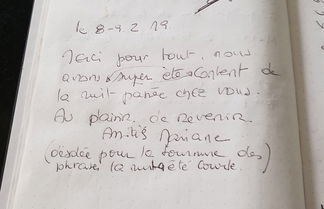 le 8-9 2 19
Merci pour tout. nous
avons super été content de
la nuit passée chez vous.
Au plaisir de revenir.
Amitiés Ariane
(désolée pour la tournure des
phrases, la nuit a été courte.)